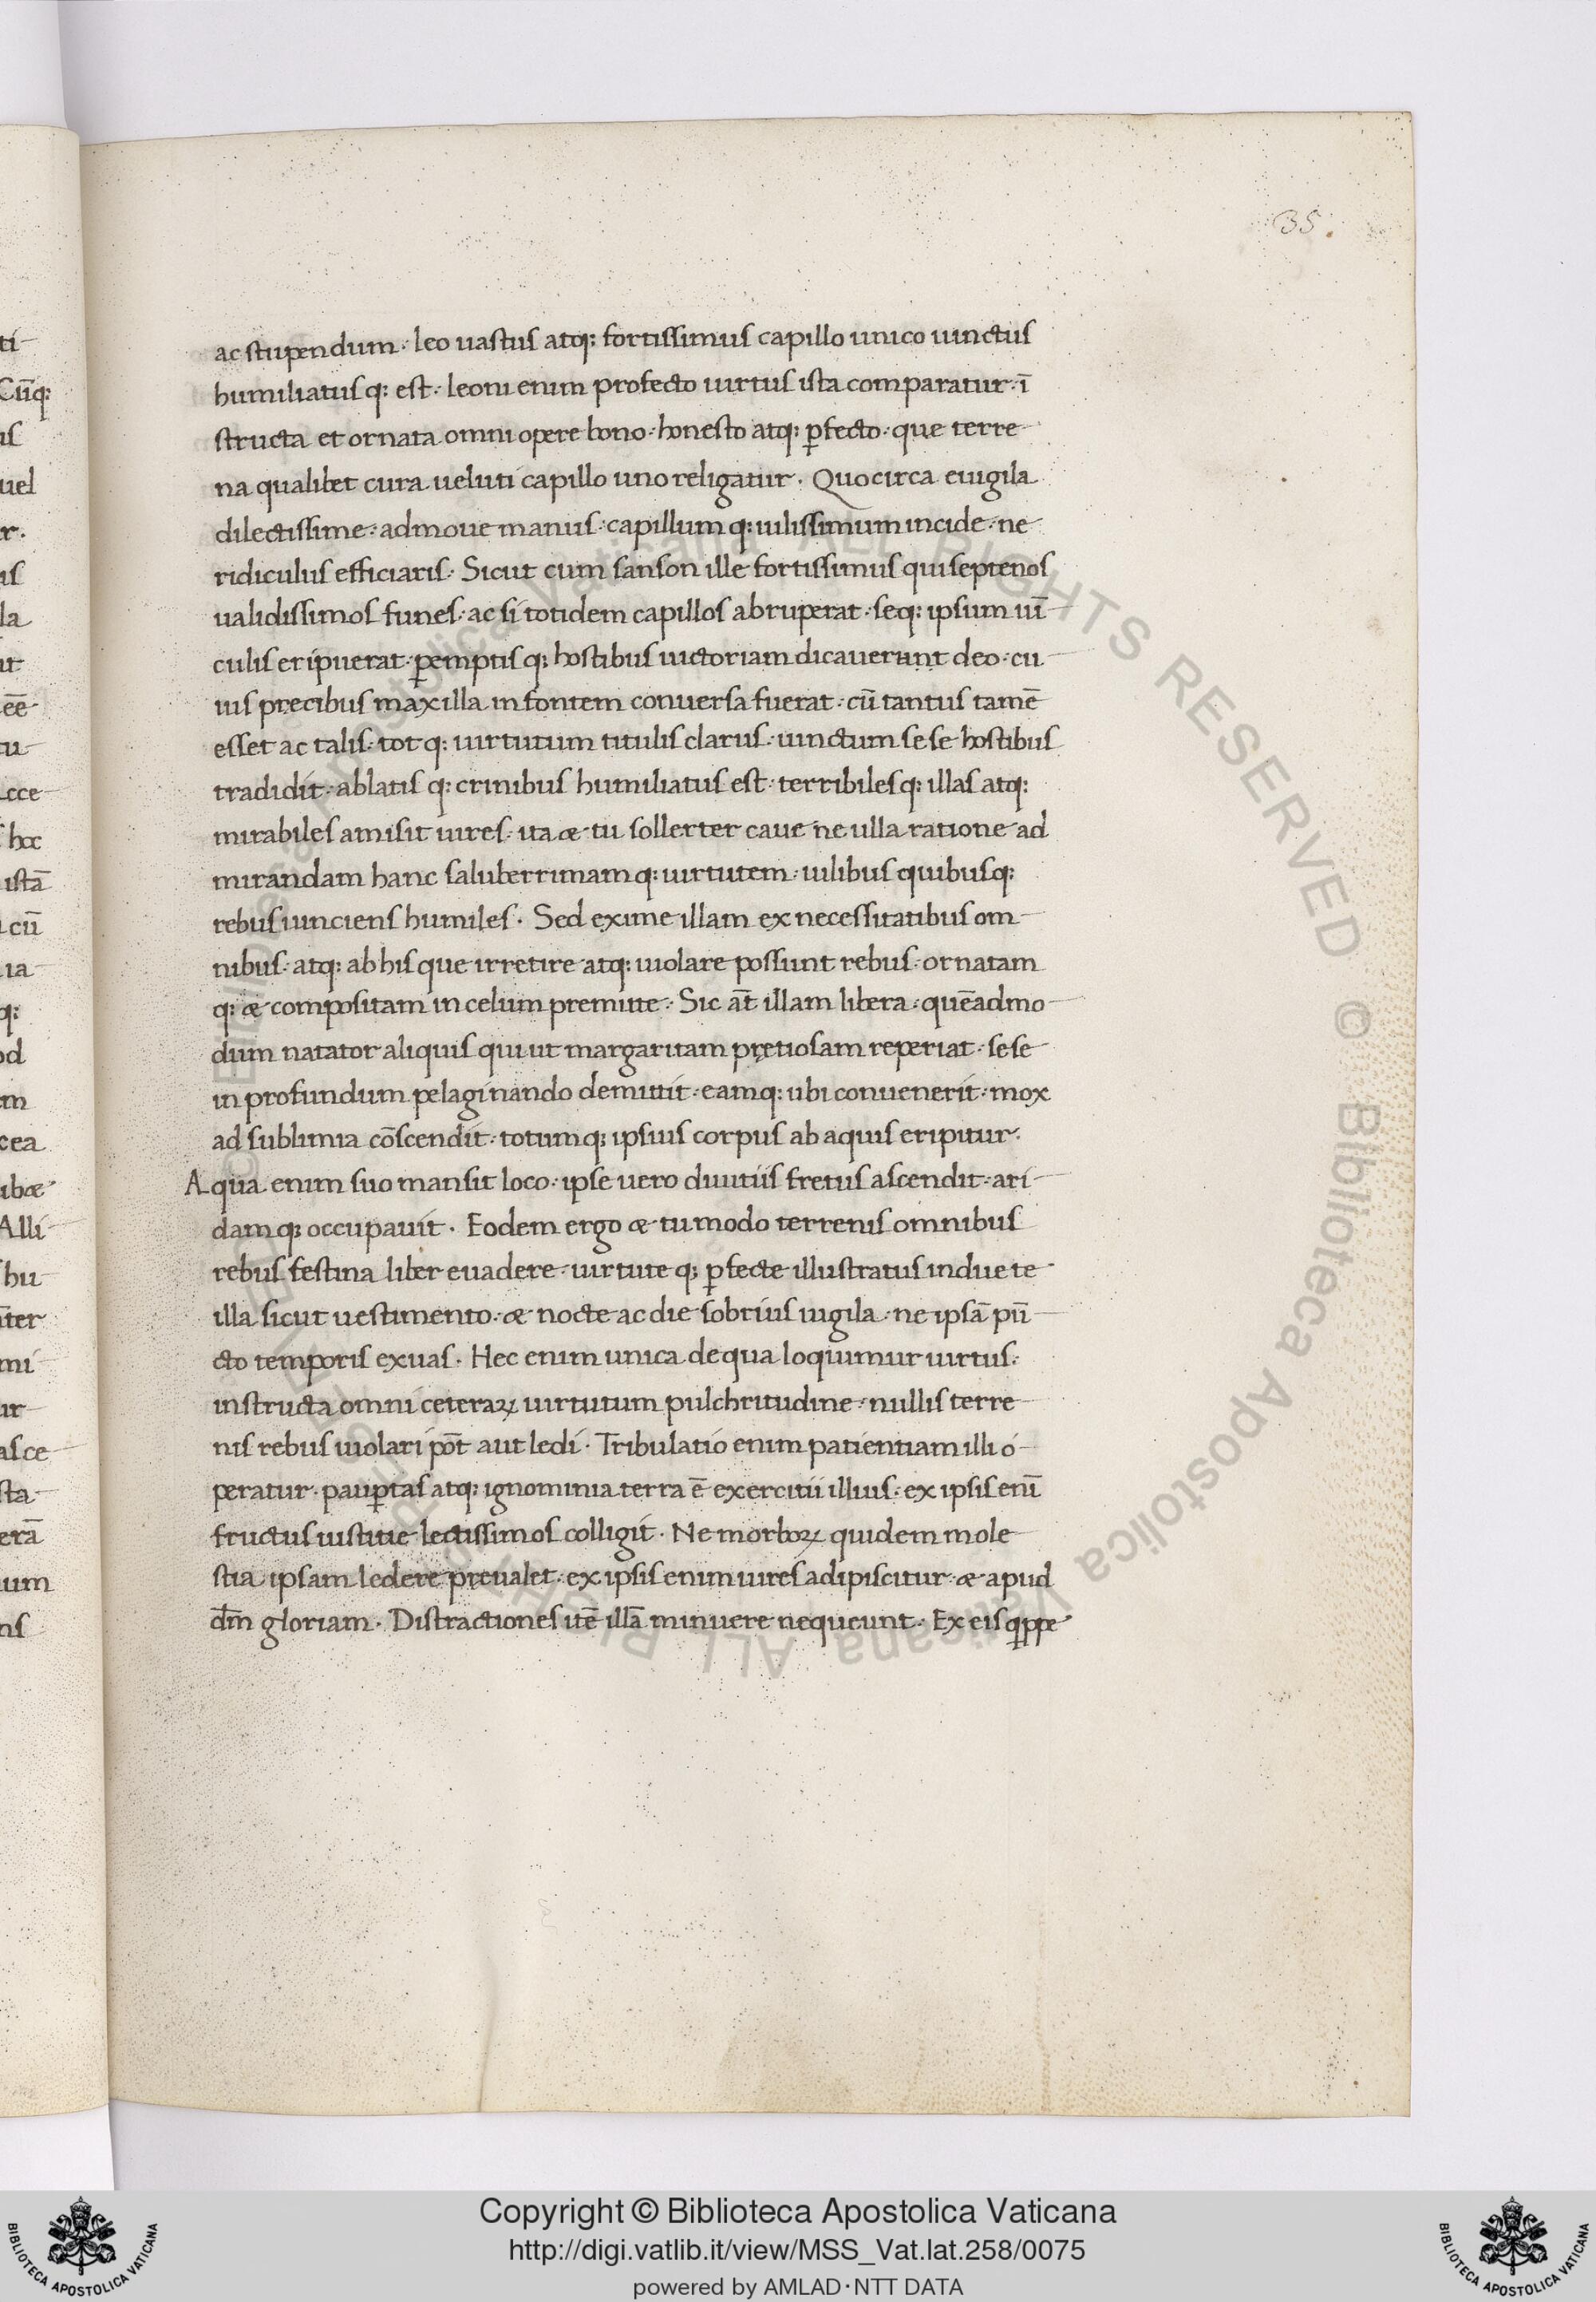 35.
ac stupendum · leo uastus atq: fortissimus capillo unico uinctus
humiliatus q: est · leoni enim profecto uirtus ista comparatur · ī
structa et ornata omni opere bono · honesto atq: ꝑfecto · que terre
na qualibet cura ueluti capillo uno religatur · Quocirca euigila
dilectissime · admoue manus · capillum q: uilissimum incide · ne
ridiculus efficiaris · Sicut cum sanson ille fortissimus qui septenos
ualidissimos funes · ac si totidem capillos abruperat · seq: ipsum uī
culis eripuerat · ꝑemptis q: hostibus uictoriam dicauerunt deo · cu
ius precibus maxilla in fontem conuersa fuerat · cū tantus tamē
esset ac talis · tot q: uirtutum titulis clarus · uinctum sese hostibus
tradidit · ablatis q: crinibus humiliatus est · terribiles q: illas atq:
mirabiles amisit uires · ita æ tu sollerter caue ne ulla ratione ad
mirandam hanc saluberrimam q: uirtutem · uilibus quibusq:
rebus iunciens humiles · Sed exime illam ex necessitatibus om
nibus · atq: ab his que irretire atq: uiolare possunt rebus · ornatam
q: æ compositam in celum premitte · Sic aт̄ illam libera · quēadmo
dum natator aliquis qui ut margaritam pretiosam reperiat · sese
in profundum pelagi nando demittit · eamq: ubi conuenerit · mox
ad sublimia cōscendit · totumq: ipsius corpus ab aquis eripitur ·
Aqua enim suo mansit loco · ipse uero diuitiis fretus ascendit · ari
damq: occupauit · Eodem ergo æ tu modo terrenis omnibus
rebus festina liber euadere · uirtute q: ꝑfecte illustratus indue te
illa sicut uestimento · æ nocte ac die sobrius uigila · ne ipsā pū
cto temporis exuas · Hec enim unica de qua loquimur uirtus ·
instructa omni ceteraꝝ uirtutum pulchritudine · nullis terre
nis rebus uiolari pōt aut ledi · Tribulatio enim patientiam illi o
peratur · pauꝑtas atq: ignominia terra ē exercitii illius · ex ipsis enī
fructus iustitie lectissimos colligit · Ne morboꝝ quidem mole
stia ipsam ledere preualet · ex ipsis enim uires adipiscitur · æ apud
dm̄ gloriam · Distractiones itē illā minuere nequeunt · Ex eis qppe
Copyright © Biblioteca Apostolica Vaticana
http://digi.vatlib.it/view/MSS_Vat.lat.258/0075
powered by AMLAD·NTT DATA